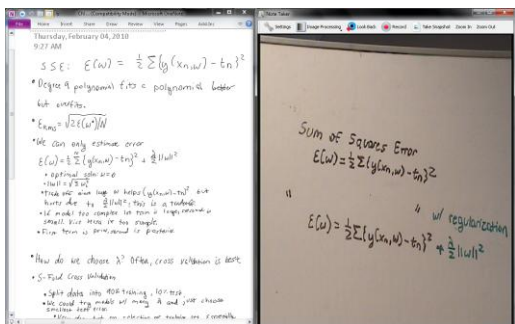 (Compatibility Mode)
Home Insert Draw Review View Pages Add-Ins
Thursday, February 04, 2010
9:27 AM
SSE: E(w) = ½ Σ{y(xn,w) - tn}²
• Degree 9 polynomial fits a polynomial better
but overfits.
• Erms = √2E(w*)/N
• We can only estimate error
E(w) = ½ Σ{y(xn,w) - tn}² + λ/2 ||w||²
• optimal soln: w=0
• Trade off: when large w helps (y(xn,w)-tn)² but
hurts due to λ/2||w||², this is a tradeoff
• If model too complex 1st term is large, second is
small. First term is too simple.
• First term is prior, second is posterior
• How do we choose λ? Often, cross validation is best.
• 5-Fold Cross Validation
• Split data into 90% training, 10% test
• We could try models w/ many λ and just choose
smallest test error
Note Taker
Settings Image Processing Look Back Record Take Snapshot Zoom In Zoom Out
Sum of Squares Error
E(w) = ½ Σ{y(xn,w) - tn}²
" " w/ regularization
E(w) = ½ Σ{y(xn,w) - tn}² + λ/2 ||w||²